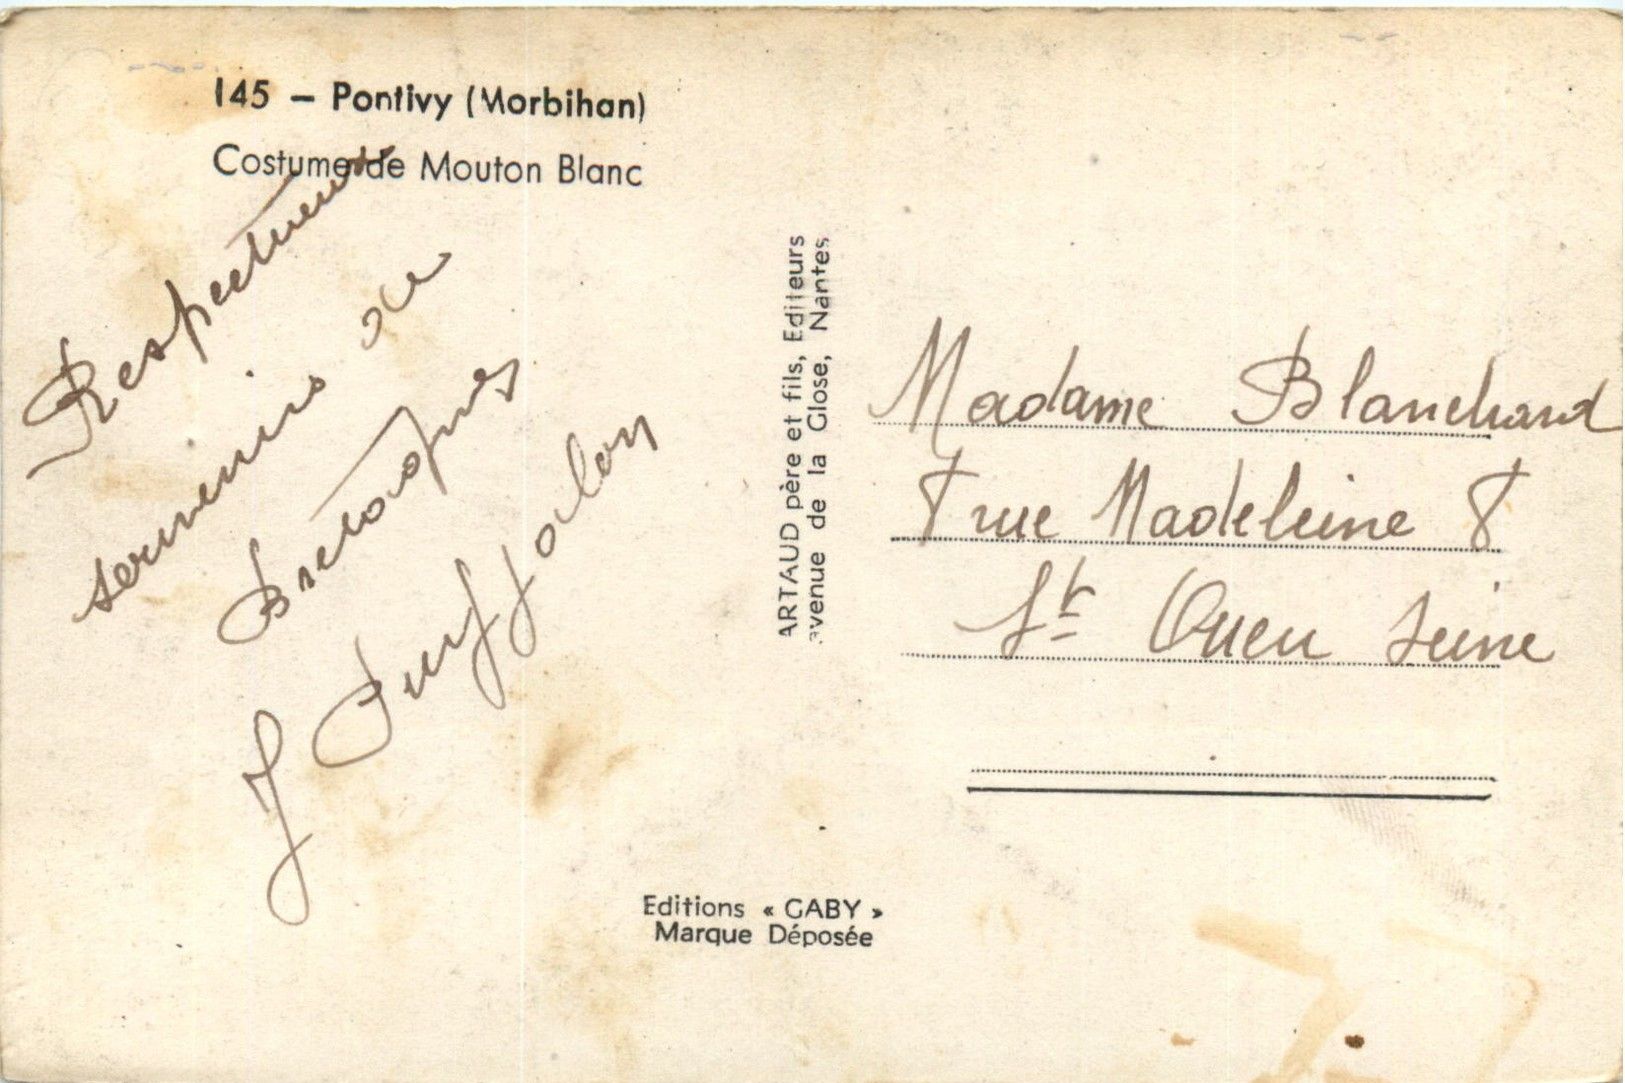 145 – Pontivy (Morbihan)
Costume de Mouton Blanc
Respectueux
souvenirs de
Bretagnes
J
ARTAUD père et fils, Editeurs
avenue de la Close, Nantes
Madame Blanchard
8 rue Madeleine 8
St Ouen Seine
Editions « GABY »
Marque Déposée